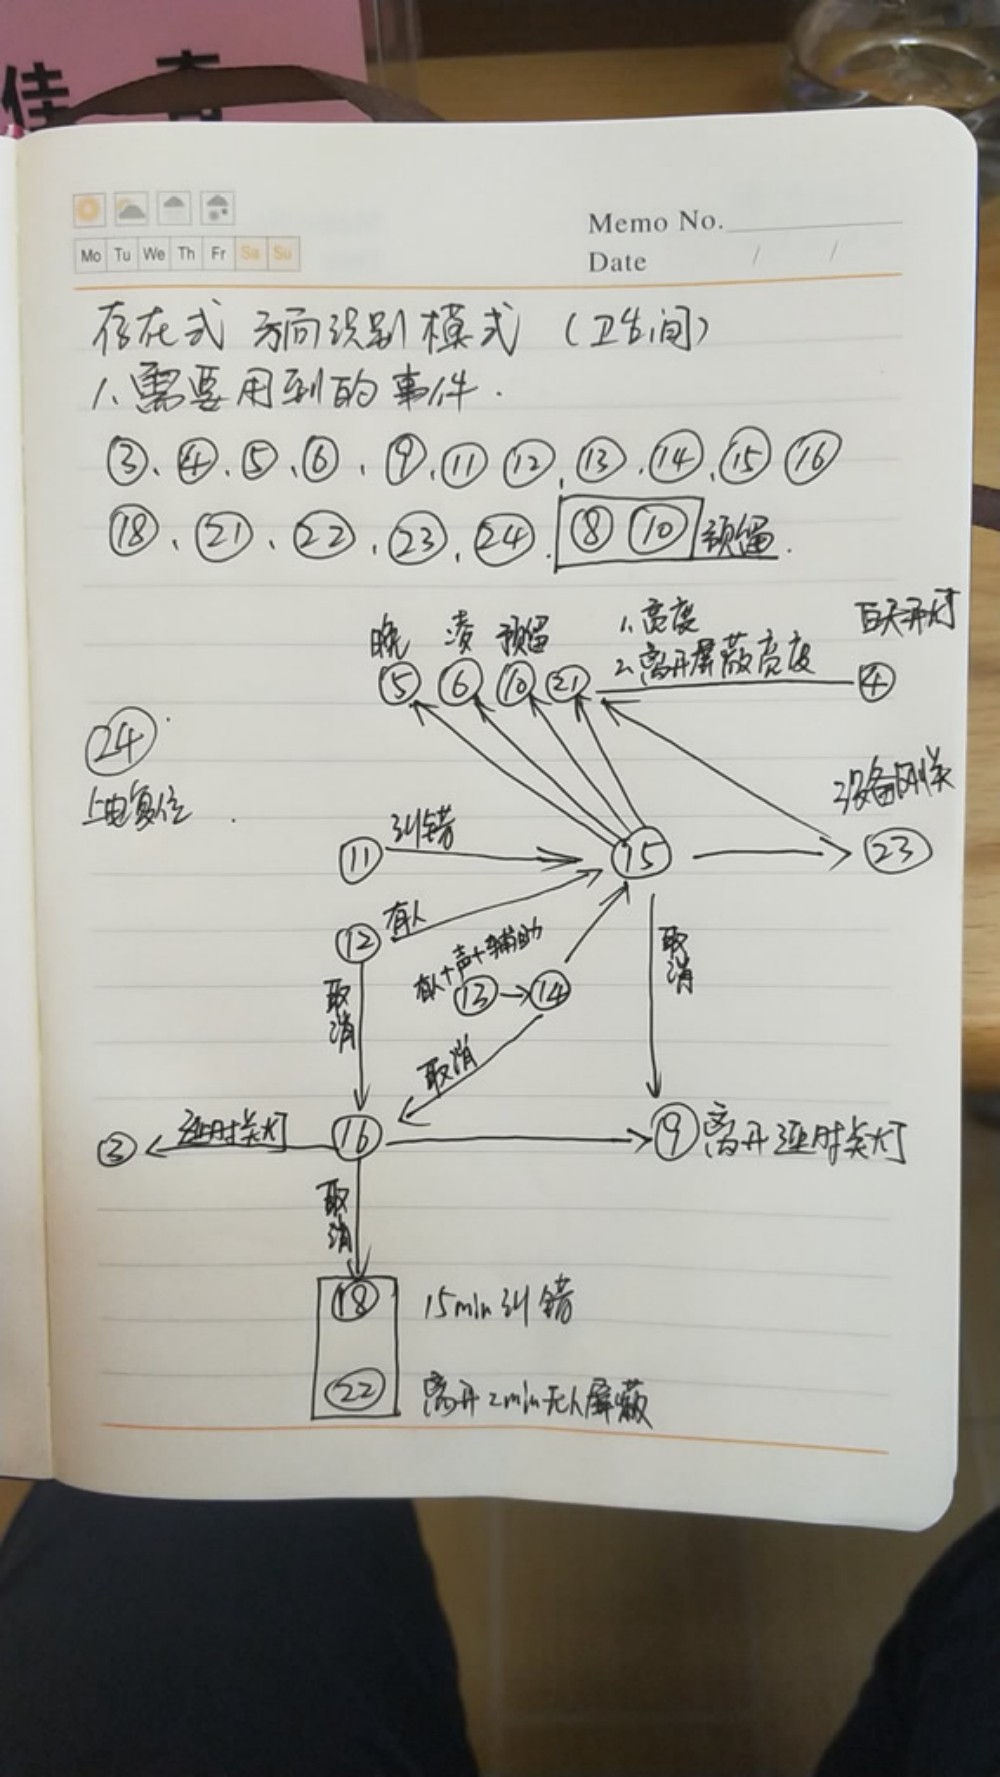 佳
Memo No.
Mo Tu We Th Fr Sa Su
Date / /
存在式 方向识别模式（卫生间）
1、需要用到的事件.
③、④、⑤、⑥、⑨、⑪ ⑫、⑬、⑭、⑮ ⑯
⑱、㉑、㉒、㉓、㉔、⑧ ⑩ 预留.
晚 凌 预留 1、亮度 白天开灯
2、离开屏蔽亮度
⑤ ⑥ ⑩ ㉑ ④
㉔
上电复位
设备刚关
⑪ 纠错 ⑮ ㉓
⑫ 有人
有人+声+辅助
取消
⑬ ⑭
取消
取消
③ 延时关灯 ⑯ ⑨ 离开延时关灯
取消
⑱ 15min纠错
㉒ 离开2min无人屏蔽